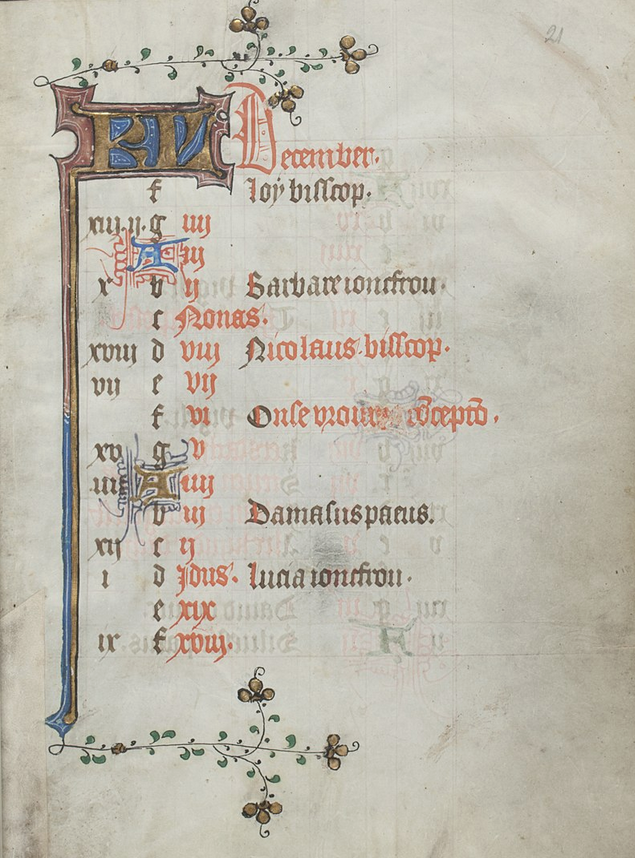 21
KL December.
f loy bisscop.
xiii. ii. g iiii
A iii
x b ii Barbare ioncfrou.
c Nonas.
xviii d viii Nicolaus bisscop.
vii e vii
f vi Onse vrouwe cōceptō.
xv g v
iiii A iiii
b iii Damasus paeus.
xii c ii
i d Idus. lucia ioncfrou.
e xix
ix f xviii.